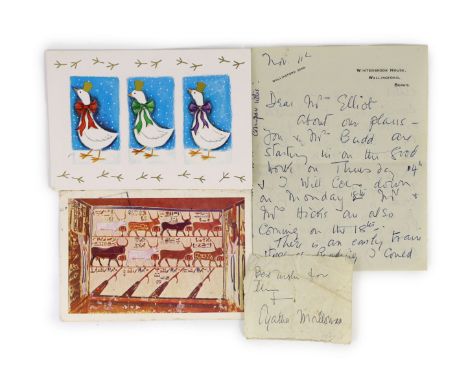 WINTERBROOK HOUSE,
WALLINGFORD,
BERKS.
Nov. 11th
Dear Mrs Elliot
About our plans -
You & Mrs Budd are
starting in on the good
work on Thursday 14th
& I will come down
on Monday 18th Mr &
Mrs Hicks are also
coming on the 18th.
There is an early train
I could
Best wishes for
Agatha Mallowan